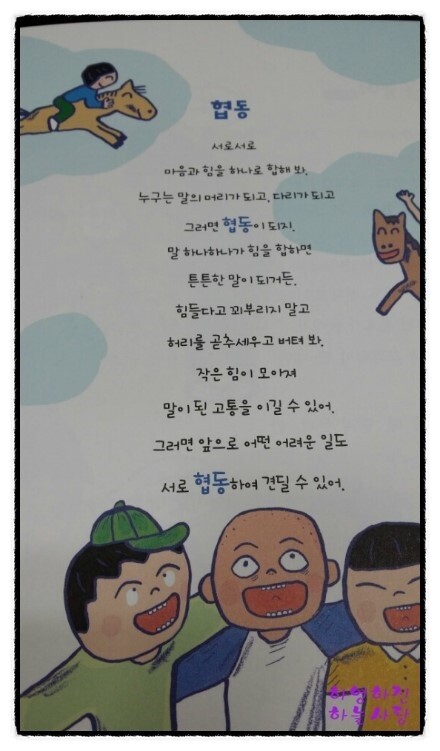 협동
서로서로
마음과 힘을 하나로 합해 봐.
누구는 말의 머리가 되고, 다리가 되고
그러면 협동이 되지.
말 하나하나가 힘을 합하면
튼튼한 말이 되거든.
힘들다고 꾀부리지 말고
허리를 곧추세우고 버텨 봐.
작은 힘이 모아져
말이 된 고통을 이길 수 있어.
그러면 앞으로 어떤 어려운 일도
서로 협동하여 견딜 수 있어.
하늘사랑